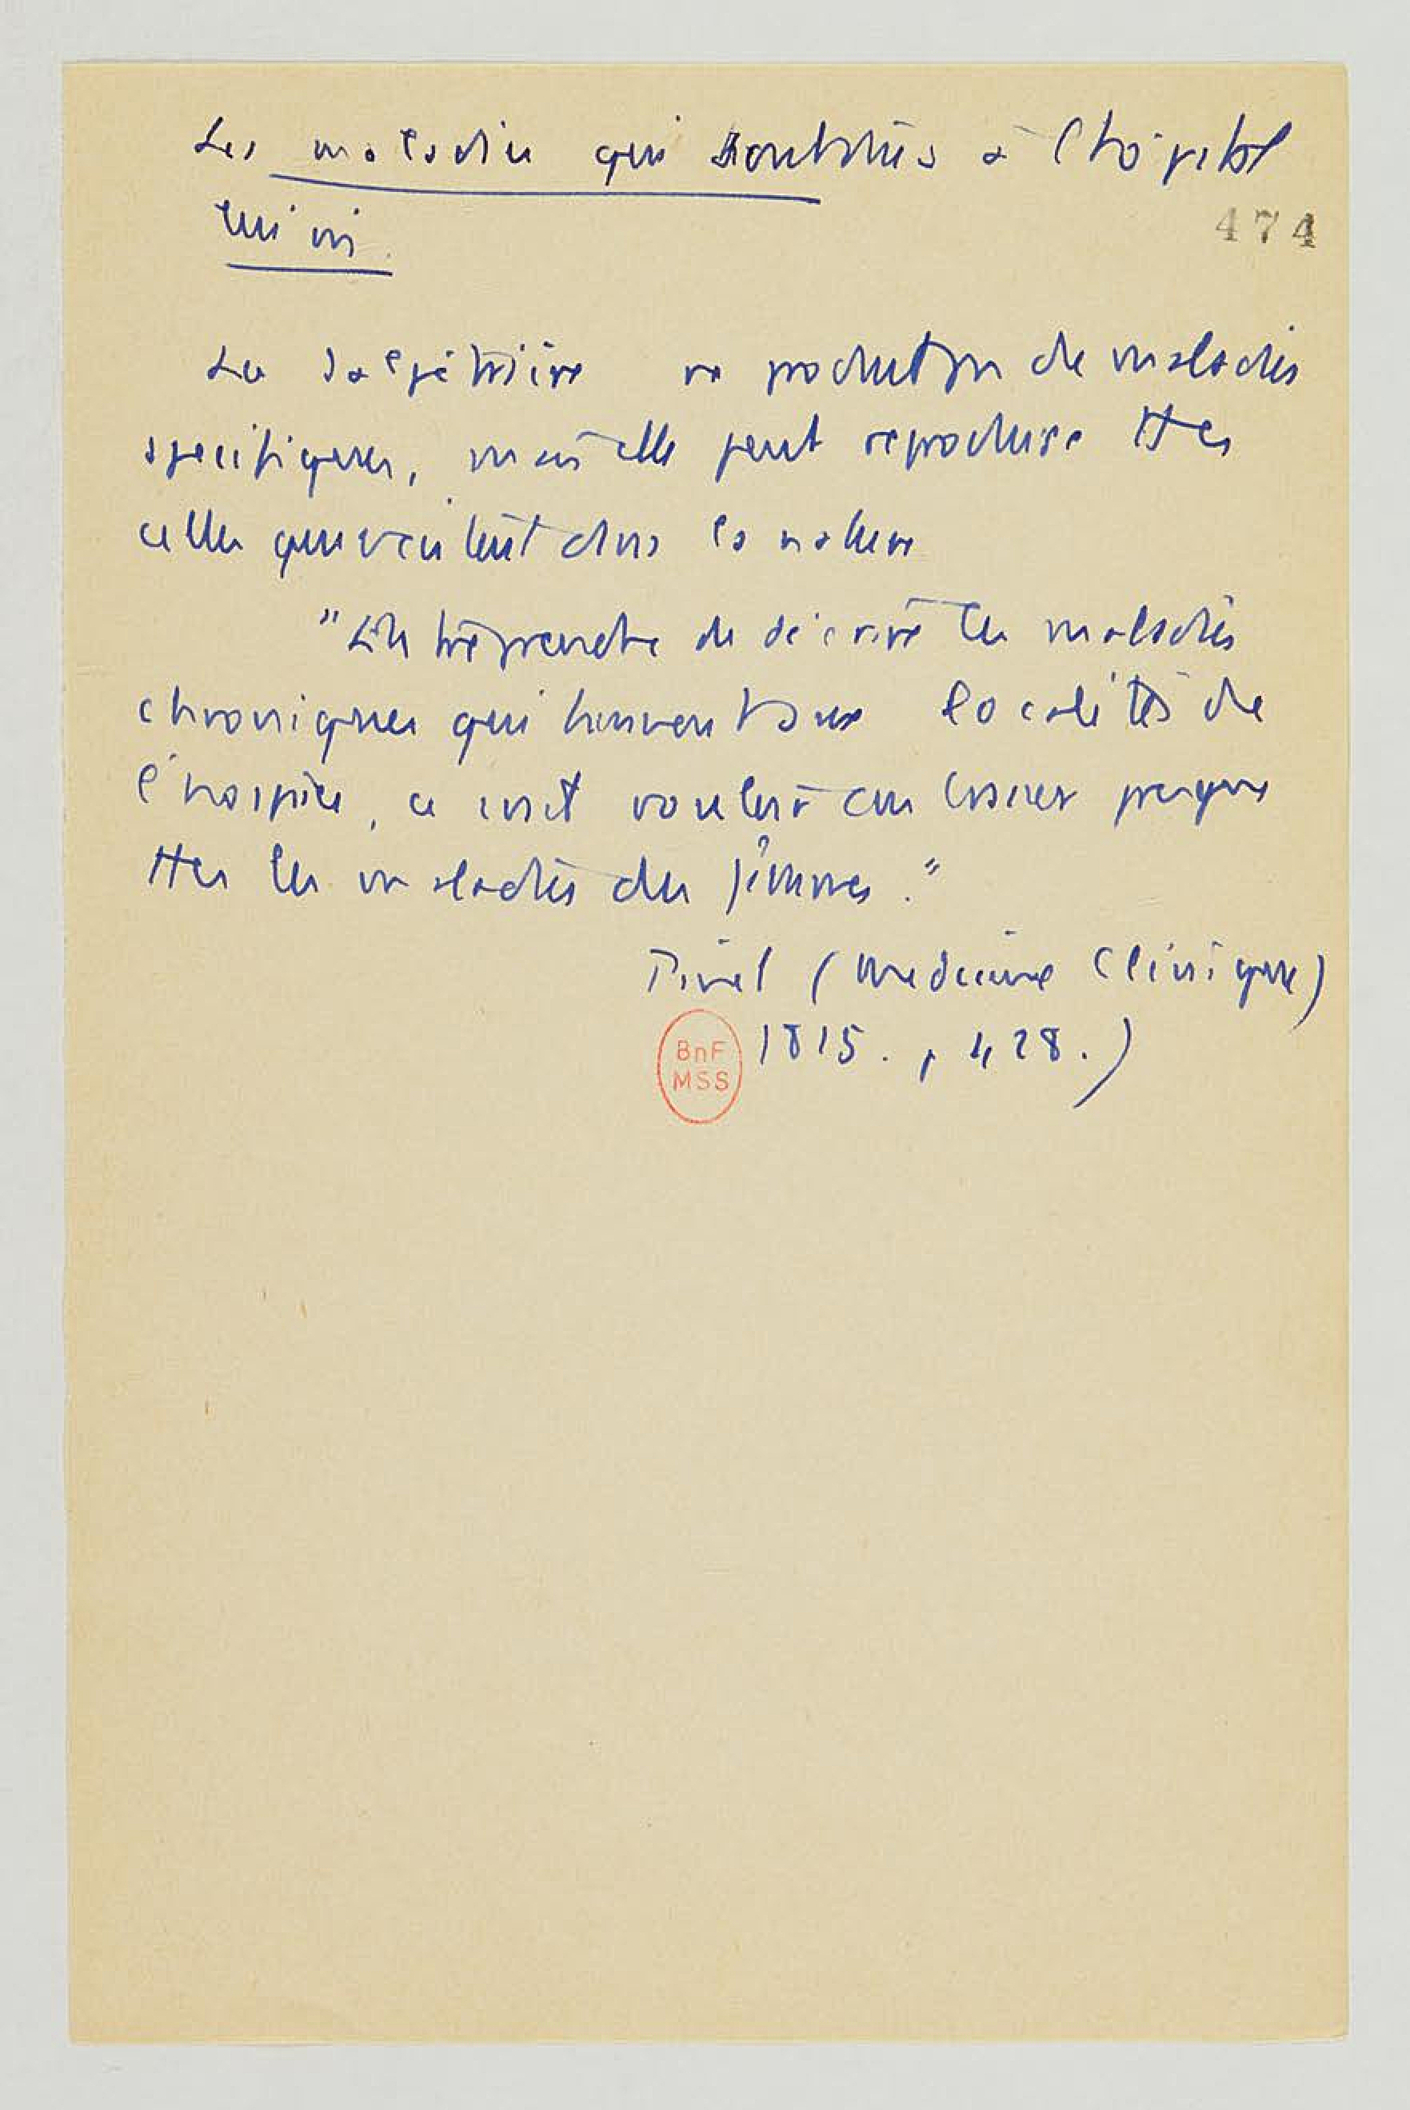 Les maladies qui sont dues à l'hôpital
lui m.
474
La Salpêtrière ne produit pas de maladies
spécifiques, mais elle peut reproduire ttes
celles qui existent dans la nature
"Entreprendre de décrire les maladies
chroniques qui tiennent aux localités de
l'hospice, ce serait vouloir embrasser presque
ttes les maladies des femmes."
Pinel (Médecine clinique)
1815. p 428.)
BnF
MSS